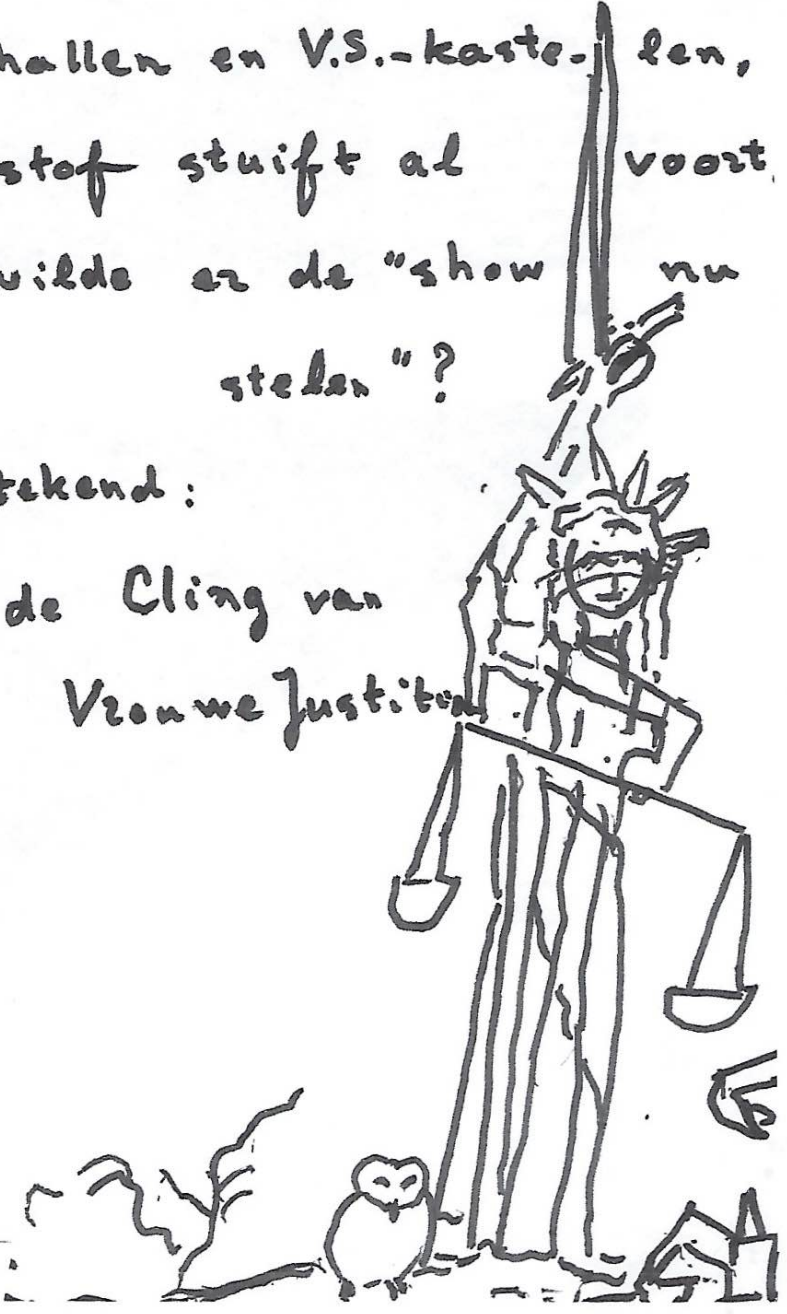 hallen en V.S.-kaste- len,
stof stuift al voort
wilde er de "show nu
stelen"?
tekend:
de Cling van
Vrouwe Justitia